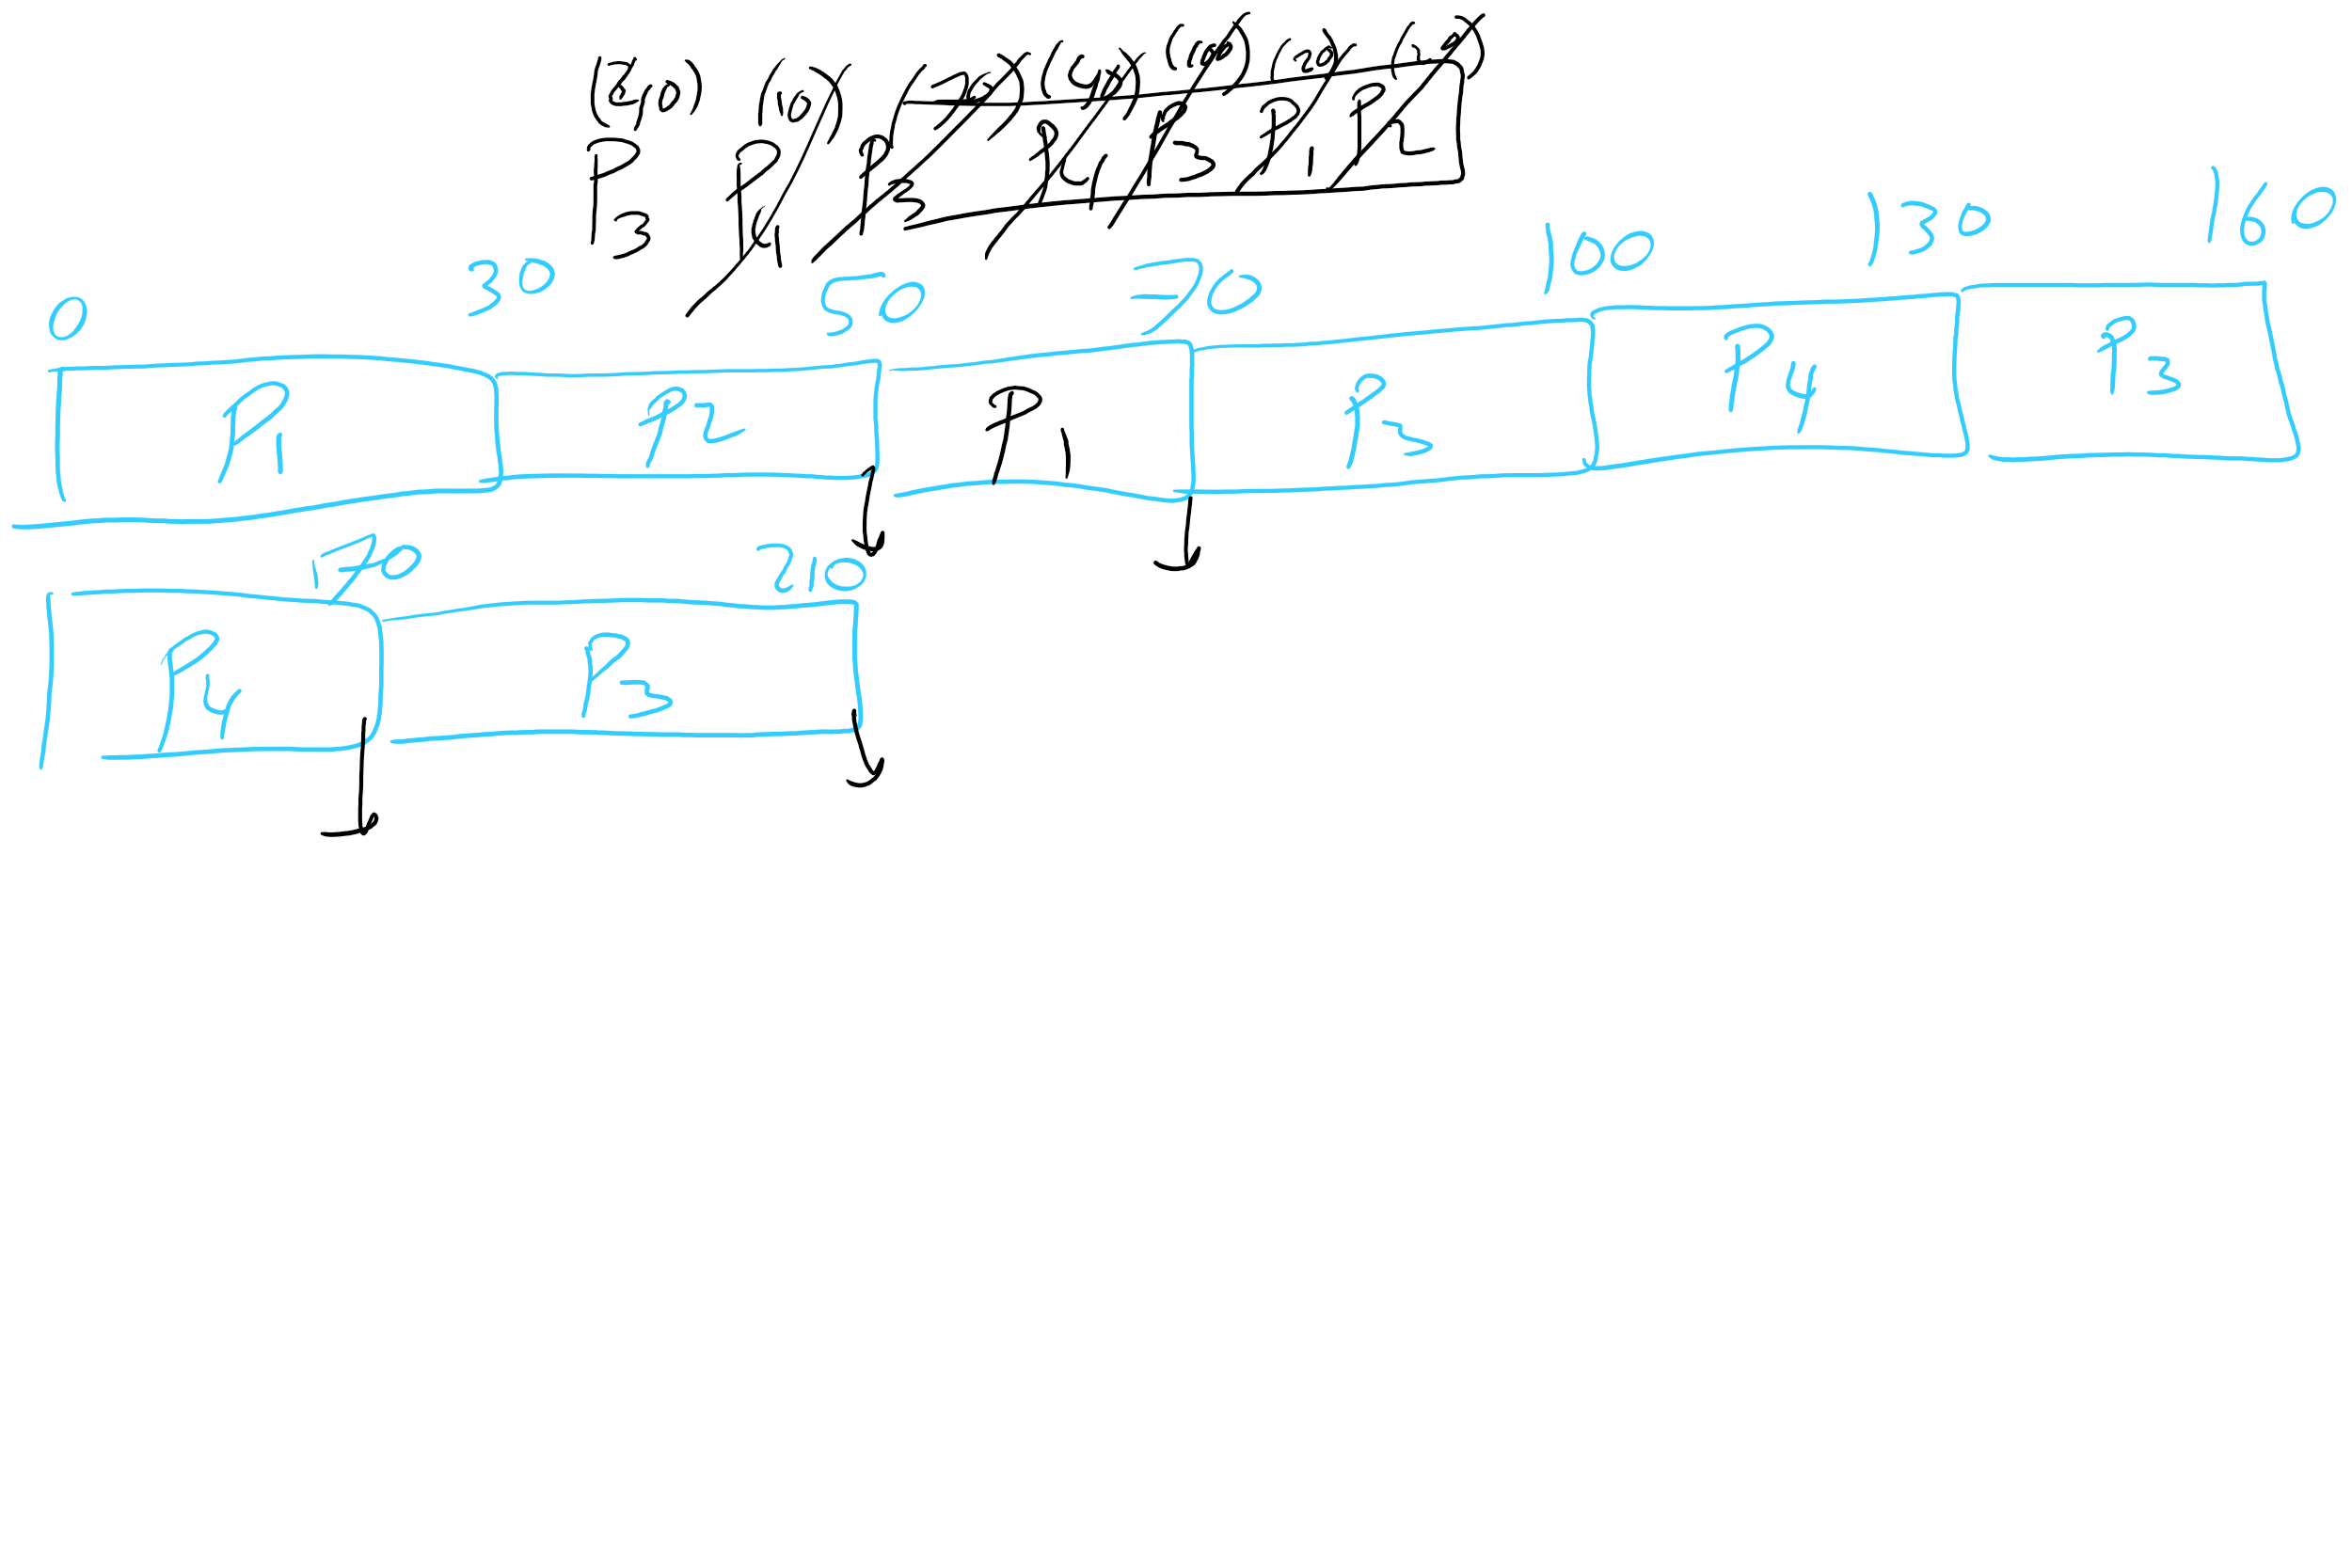 (40) (10) (70) (40) (100) (20) (20)
P3 P4 P3 P4 P3 P1 P2
0 30 50 70 100 130 160
P1 P2 P1 P3 P4 P3
170 210
P4 P3